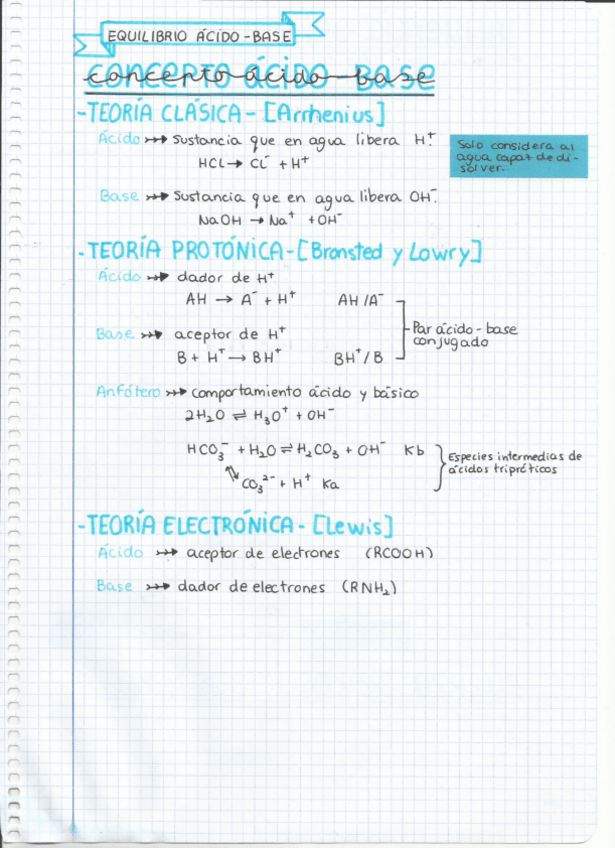 EQUILIBRIO ÁCIDO-BASE
CONCEPTO ÁCIDO-BASE
concepto ácido-base
-TEORÍA CLÁSICA- [Arrhenius]
Ácido ↣ Sustancia que en agua libera H⁺.
HCL → Cl⁻ + H⁺
Solo considera al
agua capaz de di-
solver.
Base ↣ Sustancia que en agua libera OH⁻.
NaOH → Na⁺ + OH⁻
-TEORÍA PROTÓNICA-[Bronsted y Lowry]
Ácido ↣ dador de H⁺
AH → A⁻ + H⁺ AH/A⁻
Base ↣ aceptor de H⁺
Par ácido-base
conjugado
B + H⁺ → BH⁺ BH⁺/B
Anfótero ↣ comportamiento ácido y básico
2H₂O ⇌ H₃O⁺ + OH⁻
HCO₃⁻ + H₂O ⇌ H₂CO₃ + OH⁻ Kb
⇌ CO₃²⁻ + H⁺ Ka
Especies intermedias de
ácidos tripróticos
-TEORÍA ELECTRÓNICA- [Lewis]
Ácido ↣ aceptor de electrones (RCOOH)
Base ↣ dador de electrones (RNH₂)